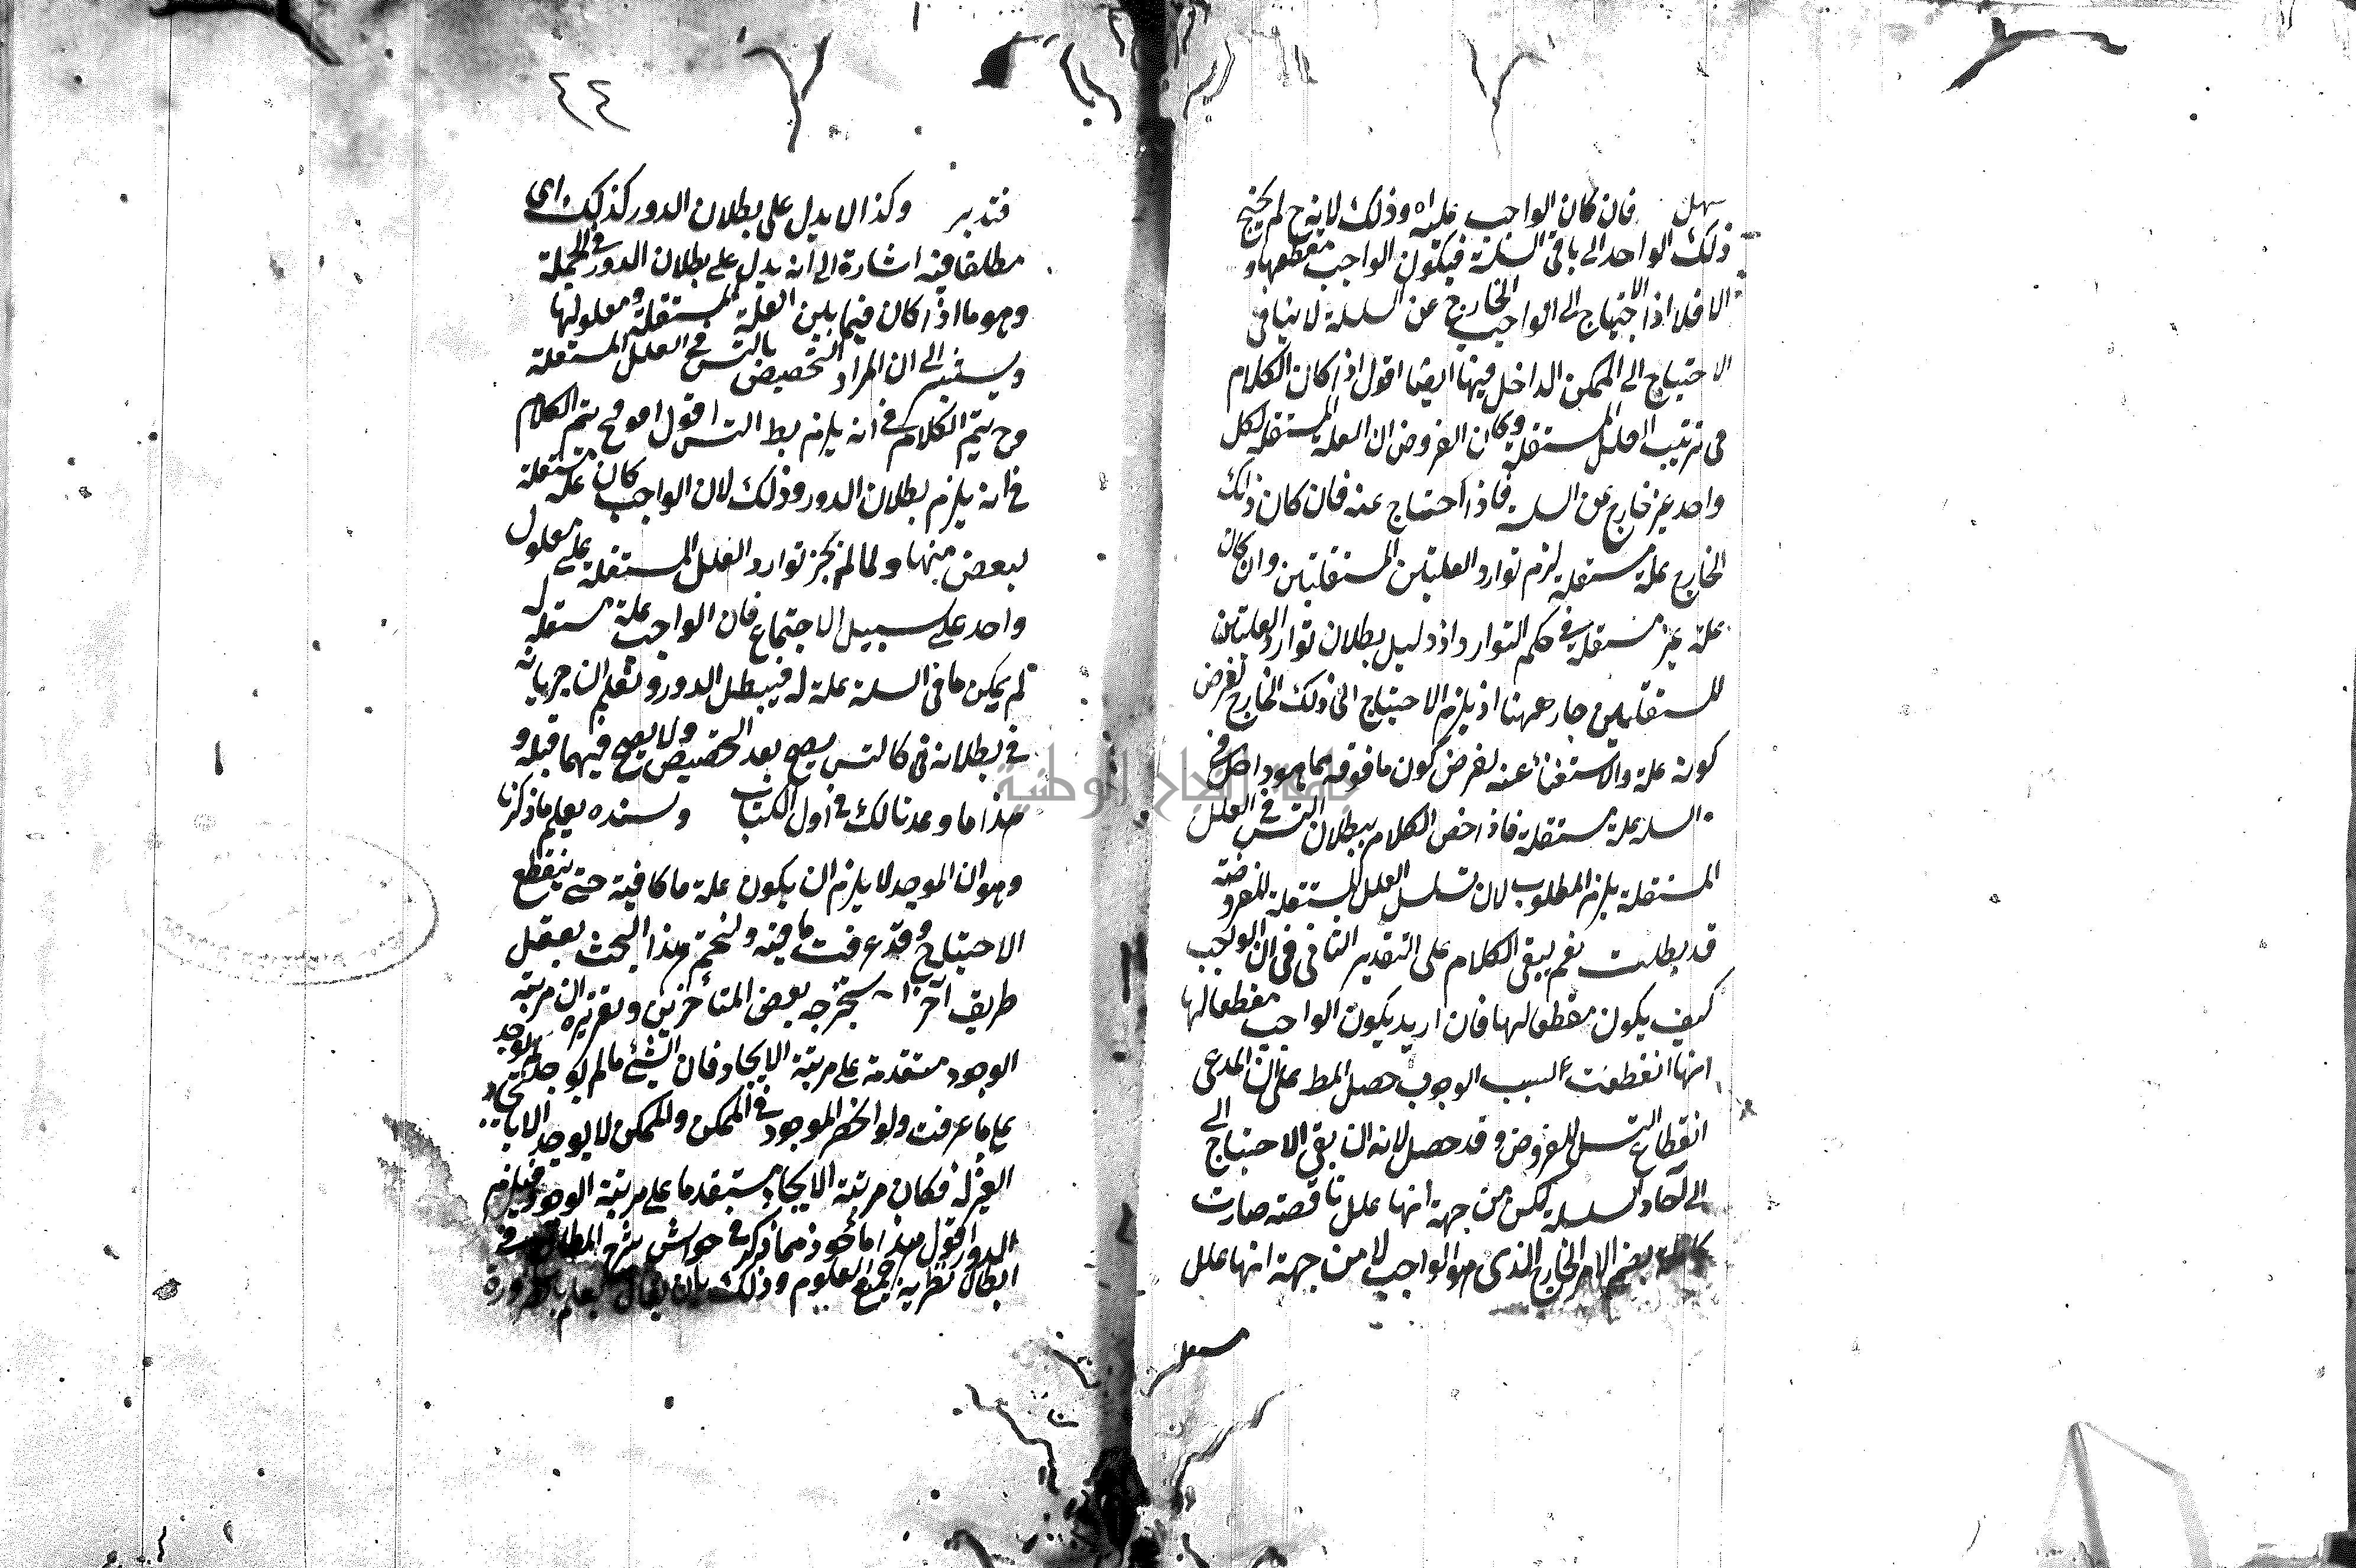 سهل فان كان الواجب علة اه وذلك لانه ح لم يحتج
ذلك الواحد الى باقى السلسلة فيكون الواجب مقطعها و
الا فلا اذ الاحتياج الى الواجب الخارج عن السلسلة لا ينافى
الاحتياج الى الممكن الداخل فيها ايضا اقول اذا كان الكلام
فى ترتيب العلل المستقلة وكان المفروض ان العلة المستقلة لكل
واحد غير خارج عن السلسة فاذا احتاج عنه فان كان ذلك
الخارج علة مستقلة لزم توارد العلتين المستقلتين وان كان
علة غير مستقلة فى حكم التوارد اذ دليل بطلان توارد العلتين
المستقلتين جار ههنا اذ يلزم الاحتياج الى ذلك الخارج لفرض
كونه علة والاستغناء عنه لفرض كون ما فوقه مما هو داخل فى
السلة علة مستقلة فاذا خص الكلام ببطلان التس فى العلل
المستقلة يلزم المطلوب لان تسلسل العلل المستقلة المفروضة
قد بطلت نعم يبقى الكلام على التقدير الثانى فى ان الواجب
كيف يكون مقطعا لها فان اريد بكون الواجب مقطعا لها
انها انقطعت السبب الوجوب حصل المط على ان المدعى
انقطاع التسل المفروض وقد حصل لانه ان بقى الاحتياج الى
الى آحاد السلسلة لكن من جهة انها علل ناقصة صارت
بضم الامر الخارج الذى هو الواجب لا من جهة انها علل
٤٤
فتدبر وكذا لا يدل على بطلان الدور كذلك اى
مطلقا فيه اشارة الى انه يدل على بطلان الدور فى الجملة
وهو ما اذا كان فيما بين العلة المستقلة ومعلولها
ويشير الى ان المراد التخصيص بالتس فى العلل المستقلة
وح يتم الكلام فى انه يلزم بط التس اقول اه وح يتم الكلام
فى انه يلزم بطلان الدور وذلك لان الواجب كان علة مستقلة
لبعض منها ولما لم يجز توارد العلل المستقلة على معلول
واحد على سبيل الاجتماع فان الواجب علة مستقلة له
لم يكن ما فى السلة علة له فيبطل الدور وتعلم ان جريانه
فى بطلانه فى كالتس يصح بعد التخصيص ولا يصح فيهما قبله و
هذا ما وعدنا لك فى اول الكتاب وسنده يعلم ما ذكرنا
وهو ان الموجد لا يلزم ان يكون علة ما كافية حتى ينقطع
الاحتياج وقد عرفت ما فيه ولنختم هذا البحث بعقل
طريق آخر استخرجه بعض المتأخرين وتقريره ان مرتبة
الوجود متقدمة على مرتبة الايجاد فان الشئ ما لم يوجد لم يوجد
على ما عرفت ولو انحصر الموجود فى الممكن والممكن لا يوجد الا بايجاد
الغير له فكان مرتبة الايجاد متقدما على مرتبة الوجود فيلزم
الدور اقول هذا مأخوذ مما ذكر فى حواشى شرح المطالع فى
ابطال نظرية جميع العلوم وذلك بان يقال